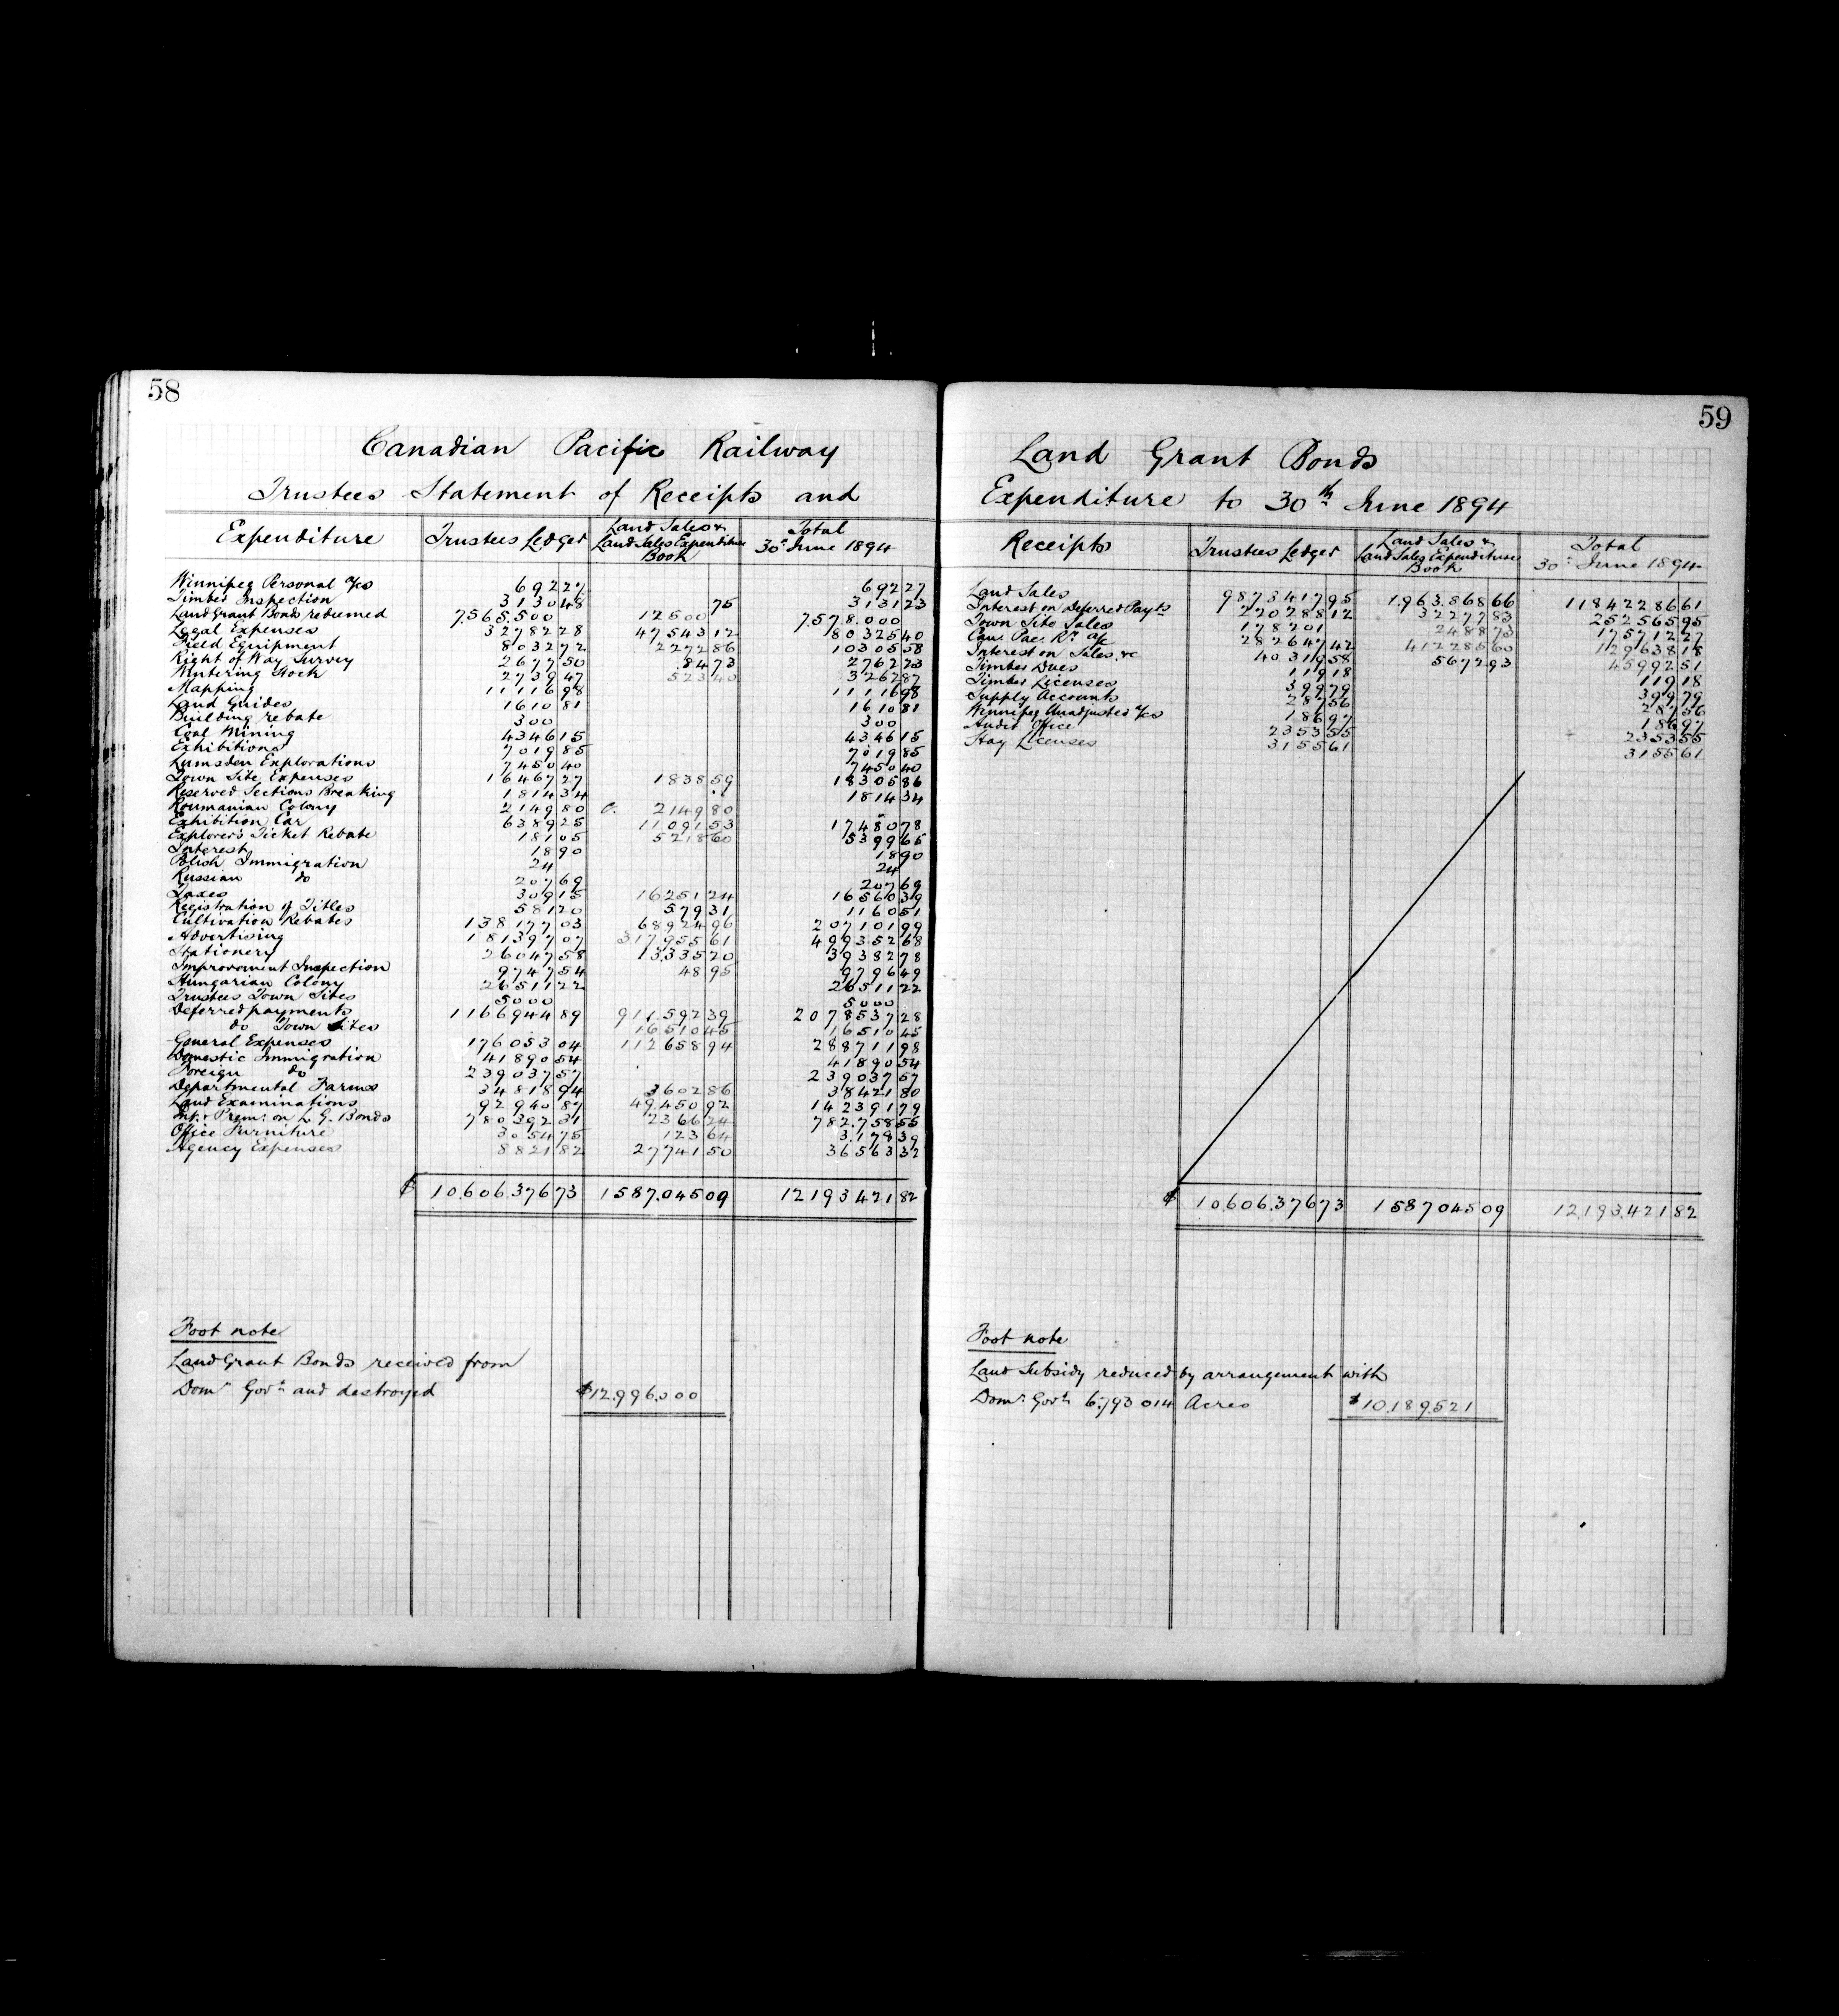 58
Canadian Pacific Railway
Trustees Statement of Receipts and
Expenditure Trustees Ledger Land Sales & Land Sales Expenditure Book Total 30" June 1894
Winnipeg Personal a/cs 692 27 692 27
Timber Inspection 3130 48 75 3131 23
Land Grant Bonds redeemed 7.565.500 12500 7.578.000
Legal Expenses 32782 28 47543 12 80325 40
Field Equipment 8032 72 2272 86 10305 58
Right of Way Survey 2677 50 84 73 2762 23
Wintering Stock 2739 47 523 40 3262 87
Mapping 11116 98 11116 98
Land Guides 1610 81 1610 81
Building rebate 300 300
Coal Mining 4346 15 4346 15
Exhibitions 7019 85 7019 85
Lumsden Explorations 7450 40 7450 40
Town Site Expenses 16467 27 1838 59 18305 86
Reserved Sections Breaking 1814 34 1814 34
Roumanian Colony 2149 80 C. 2149 80
Exhibition Car 6389 25 11091 53 17480 78
Explorer's Ticket Rebate 181 05 5218 60 5399 65
Interest 18 90 18 90
Polish Immigration 24 24
Russian do 207 69 207 69
Taxes 309 15 16251 24 16560 39
Registration of Titles 581 20 579 31 1160 51
Cultivation Rebates 138177 03 68924 96 207101 99
Advertising 181397 07 317955 61 499352 68
Stationery 26047 58 13335 20 39382 78
Improvement Inspection 9747 54 48 95 9796 49
Hungarian Colony 26511 22 26511 22
Trustees Town Sites 5000 5000
Deferred payments 1166944 89 911.592 39 2078537 28
do Town Sites 16510 45 16510 45
General Expenses 176053 04 112658 94 288711 98
Domestic Immigration 41890 54 41890 54
Foreign do 239037 57 239037 57
Departmental Farms 34818 94 3602 86 38421 80
Land Examinations 92940 87 49.450 92 142391 79
Int. & Prem: on L. G. Bonds 780392 31 2366 24 782.758 55
Office Furniture 3054 75 123 64 3.178 39
Agency Expenses 8821 82 27741 50 36563 32
$ 10.606.376 73 1587.045 09 12193421 82
Foot note
Land Grant Bonds received from
Domn Govt. and destroyed $12.996.000
59
Land Grant Bonds
Expenditure to 30th June 1894
Receipts Trustees Ledger Land Sales & Land Sales Expenditure Book Total 30" June 1894
Land Sales 9873417 95 1.963.868 66 11842286 61
Interest on Deferred Payts 220288 12 32277 83 252565 95
Town Site Sales
Can. Pac. Ry a/c 282647 42 412285 60
Interest on Sales &c 40319 58 5672 93 45992 51
Timber Dues 119 18 119 18
Timber Licenses 399 79 399 79
Supply Accounts 287 56 287 56
Winnipeg Unadjusted a/cs 186 97 186 97
Audit Office 2353 55 2353 55
Hay Licenses 3155 61 3155 61
$ 10.606.376 73 1587045 09 12.193.421 82
Foot note
Land Subsidy reduced by arrangement with
Domn. Govt. 6.793 014 Acres $10.189.521